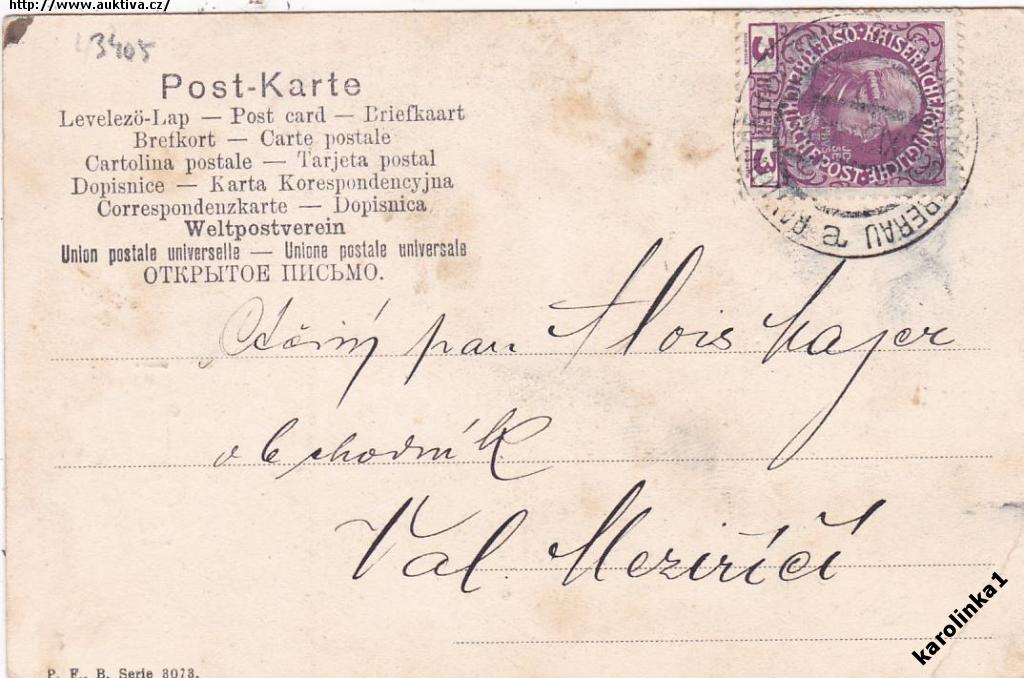 http://www.auktiva.cz/
3405
Post-Karte
Levelezö-Lap — Post card — Briefkaart
Brefkort — Carte postale
Cartolina postale — Tarjeta postal
Dopisnice — Karta Korespondencyjna
Correspondenzkarte — Dopisnica
Weltpostverein
Union postale universelle — Unione postale universale
ОТКРЫТОЕ ПИСЬМО.
3 HELLER 3
KAISERLICHEKÖNIGLICHE ÖSTERREICHISCHE POST
BERAU
pan Alois Kajer
obchodník
Val Meziříčí
P. F. B. Serie 3073.
karolinka1